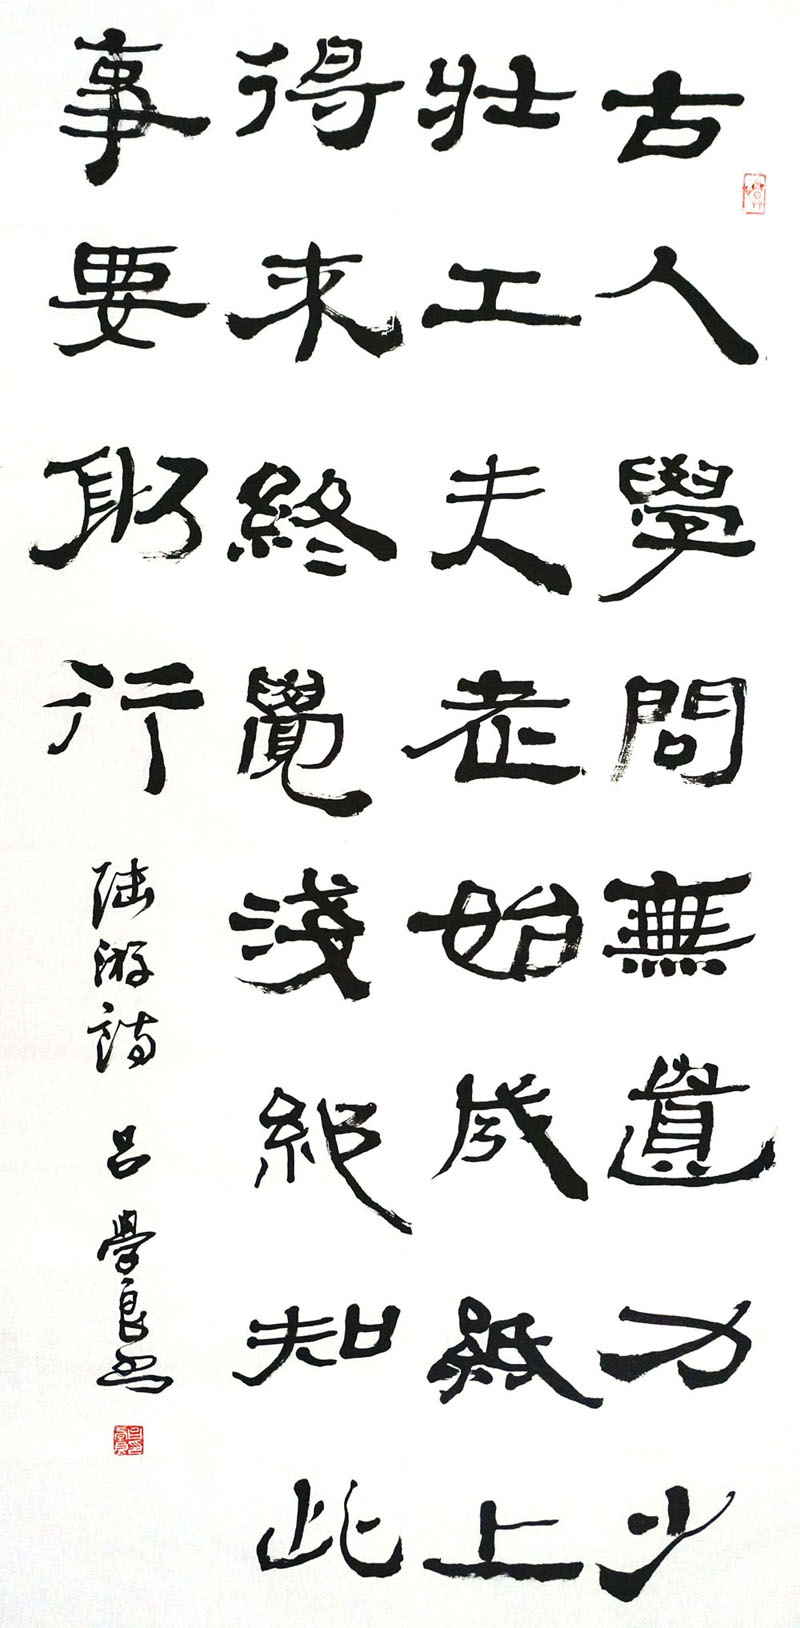 古人學問無遺力少
壯工夫老始成紙上
得來終覺淺絕知此
事要躬行
陸游詩 呂學良書